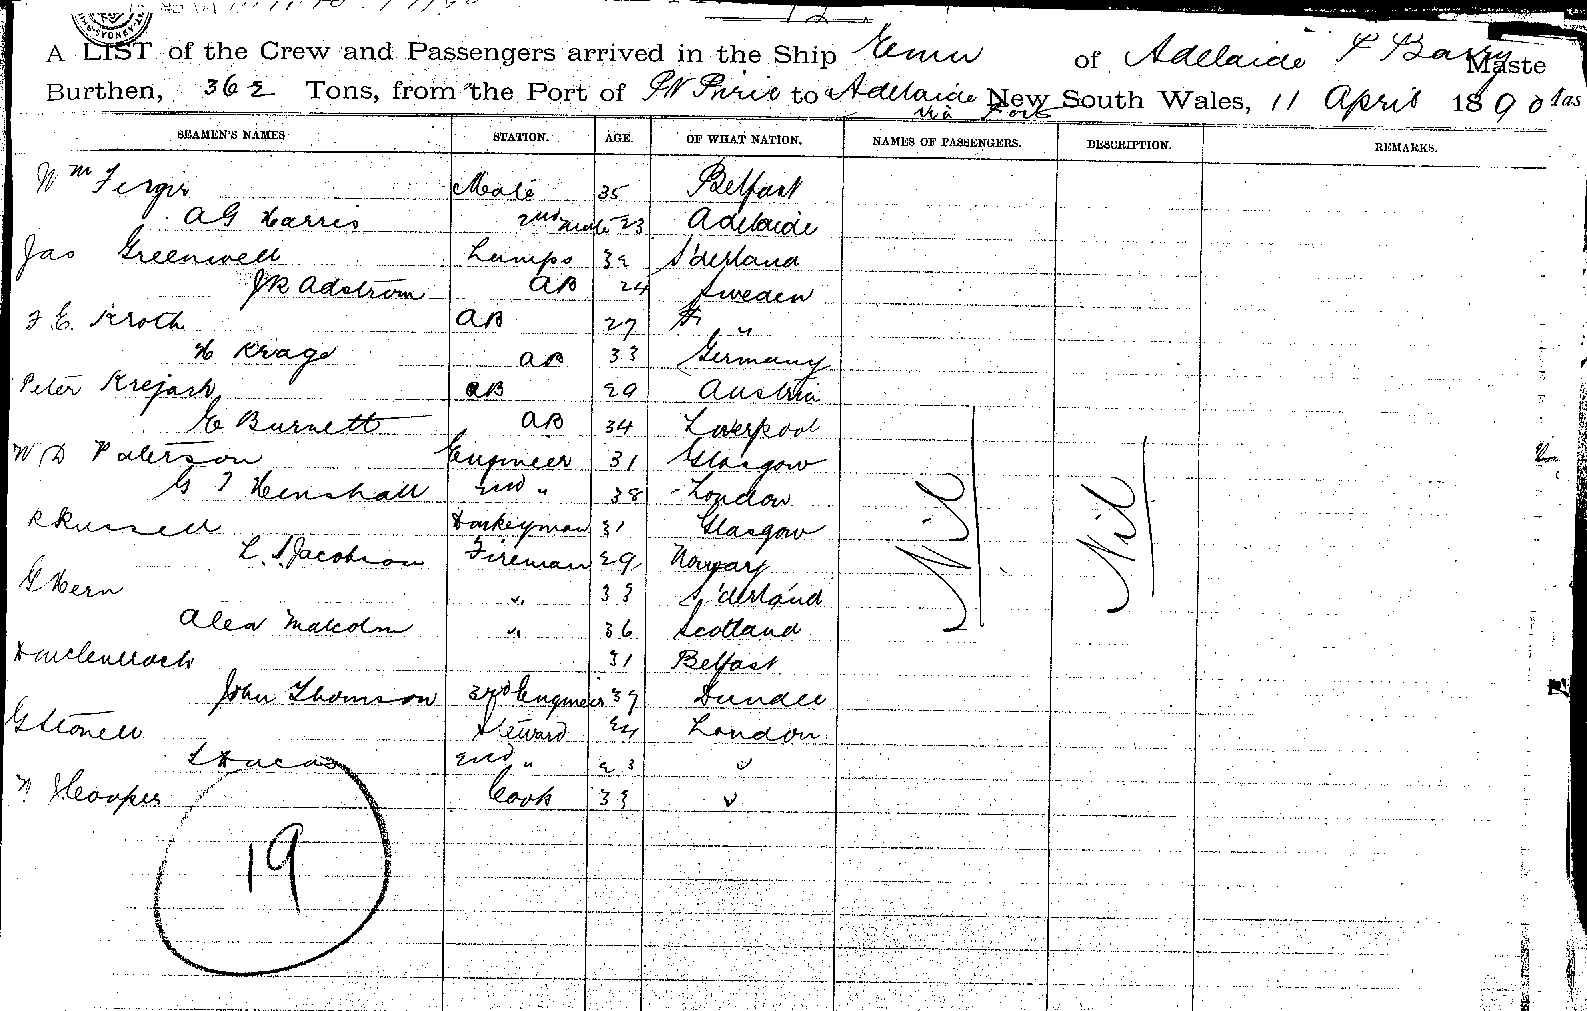 A LIST of the Crew and Passengers arrived in the Ship of Adelaide Barry Maste
Burthen, 362 Tons, from the Port of Pt Pirie to Adelaide New South Wales, 11 April 1890
via Port
SEAMEN'S NAMES STATION. AGE. OF WHAT NATION. NAMES OF PASSENGERS. DESCRIPTION. REMARKS.
Wm Mate 35 Belfast
A G Harris 2nd Mate 23 Adelaide
Jas Greenwell Lamps 32 S'derland
J R Adstrom AB 24 Sweden
F E. Kroth AB 27 "
H Krage AB 33 Germany
Peter AB 29 Austria
E Burnett AB 34 Liverpool
W D Paterson Engineer 31 Glasgow
G T Henshall 2nd " 38 London
R Russell Donkeyman 31 Glasgow
L. S. Jacobson Fireman 29 Norway
G Hern " 33 S'derland
Alex Malcolm " 36 Scotland
31 Belfast
John Thomson 3rd Engineer 39 Dundee
G Stonell Steward 24 London
2nd " 23 "
W Hooper Cook 33 "
Nil Nil
19